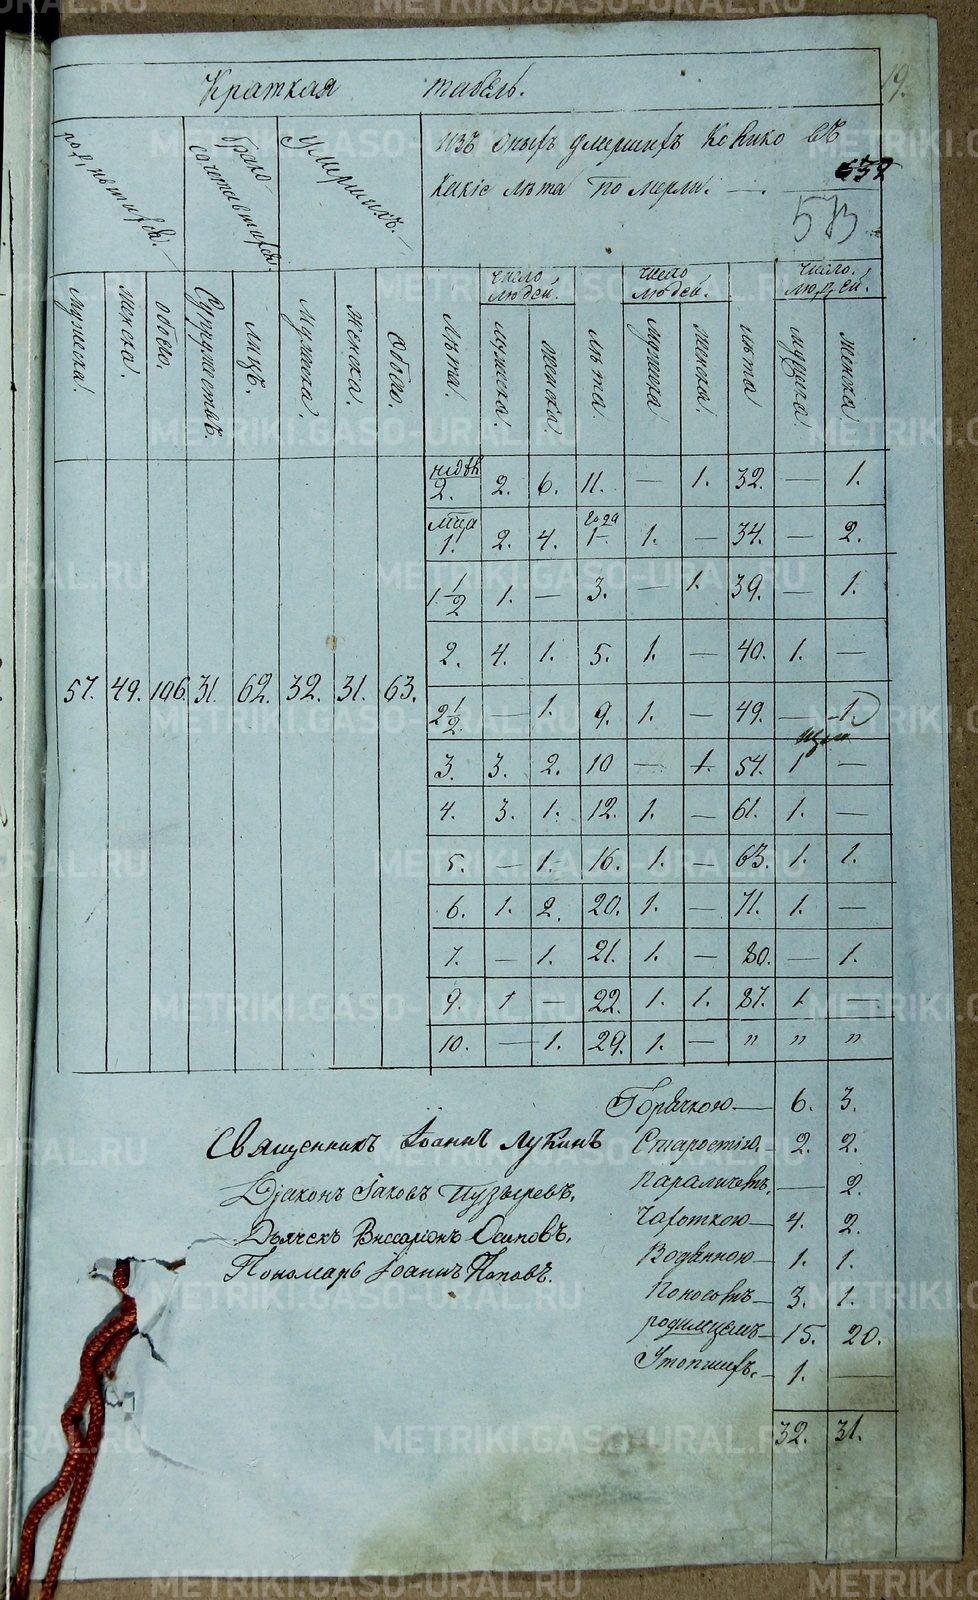 19.
Краткая табель.
родившихся.
Брако сочетавшихся.
Умершихъ.
Изъ оныхъ умершихъ колико въ
какіе лѣта померли.
573
мужеска. женска. обоего. Супружествъ. лицъ. мужска. женска. обоего.
лѣта. число людей. мужеска. женска. лѣта. число людей. мужска. женска. лѣта число людей. мужска. женска.
57. 49. 106. 31. 62. 32. 31. 63.
недѣль 2. 2. 6. 11. — 1. 32. — 1.
мца 1. 2. 4. года 1. 1. — 34. — 2.
1 1/2 1. — 3. — 1. 39. — 1.
2. 4. 1. 5. 1. — 40. 1. —
2 1/2. — 1. 9. 1. — 49. — 1.
3. 3. 2. 10 — 1. 54. 1 —
4. 3. 1. 12. 1. — 61. 1. —
5. — 1. 16. 1. — 63. 1. 1.
6. 1. 2. 20. 1. — 71. 1. —
7. — 1. 21. 1. — 80. — 1.
9. 1 — 22. 1. 1. 87. 1. —
10. — 1. 29. 1. — " " "
Горячкою — 6. 3.
Старостію. 2. 2.
Параличемъ. — 2.
Чахоткою — 4. 2.
Водянною — 1. 1.
Поносомъ — 3. 1.
родимцемъ — 15. 20.
Утопшихъ. — 1. —
32. 31.
Священникъ Іоаннъ Лукинъ
Діаконъ Іаковъ Пузыревъ.
Дьячекъ Виссаріонъ Осиповъ.
Пономарь Іоаннъ Поповъ.
METRIKI.GASO-URAL.RU